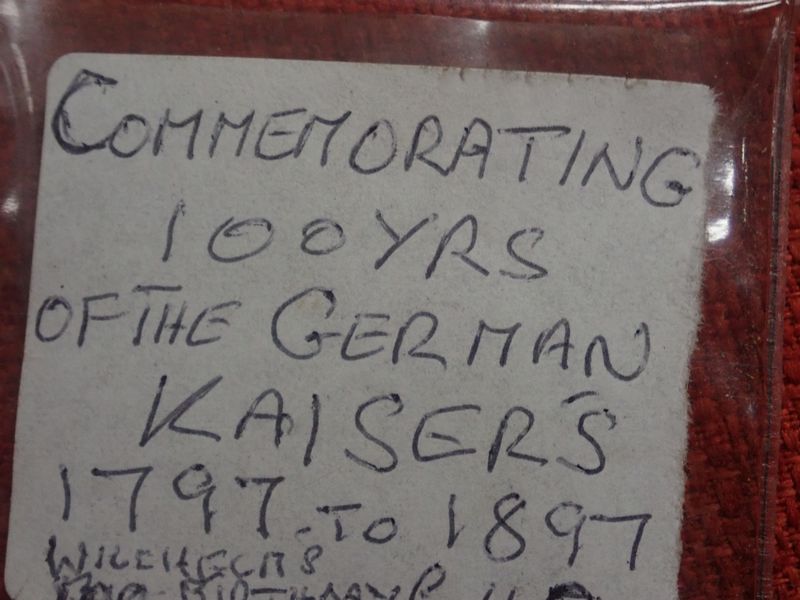 COMMEMORATING
100YRS
OF THE GERMAN
KAISER'S
1797 - TO 1897
WILLHELMS